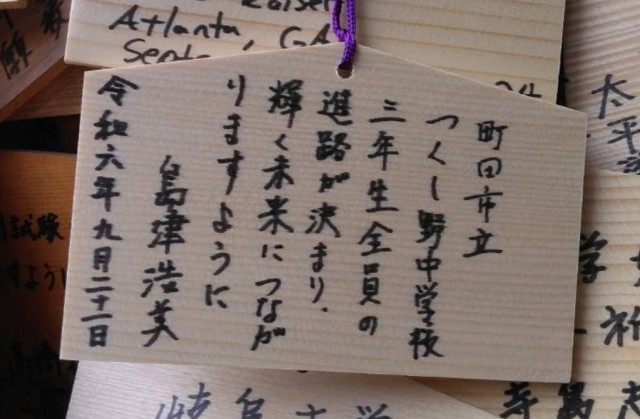 町田市立
つくし野中学校
三年生全員の
進路が決まり、
輝く未来につなが
りますように
島津浩美
令和六年九月二十一日
Atlanta, GA
太平
学
寺